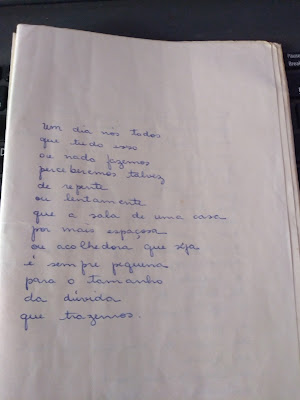 Um dia nós todos
que tudo isso
ou nada fazemos
perceberemos talvez
de repente
ou lentamente
que a sala de uma casa
por mais espaçosa
ou acolhedora que seja
é sempre pequena
para o tamanho
da dúvida
que trazemos.
Pause
Break